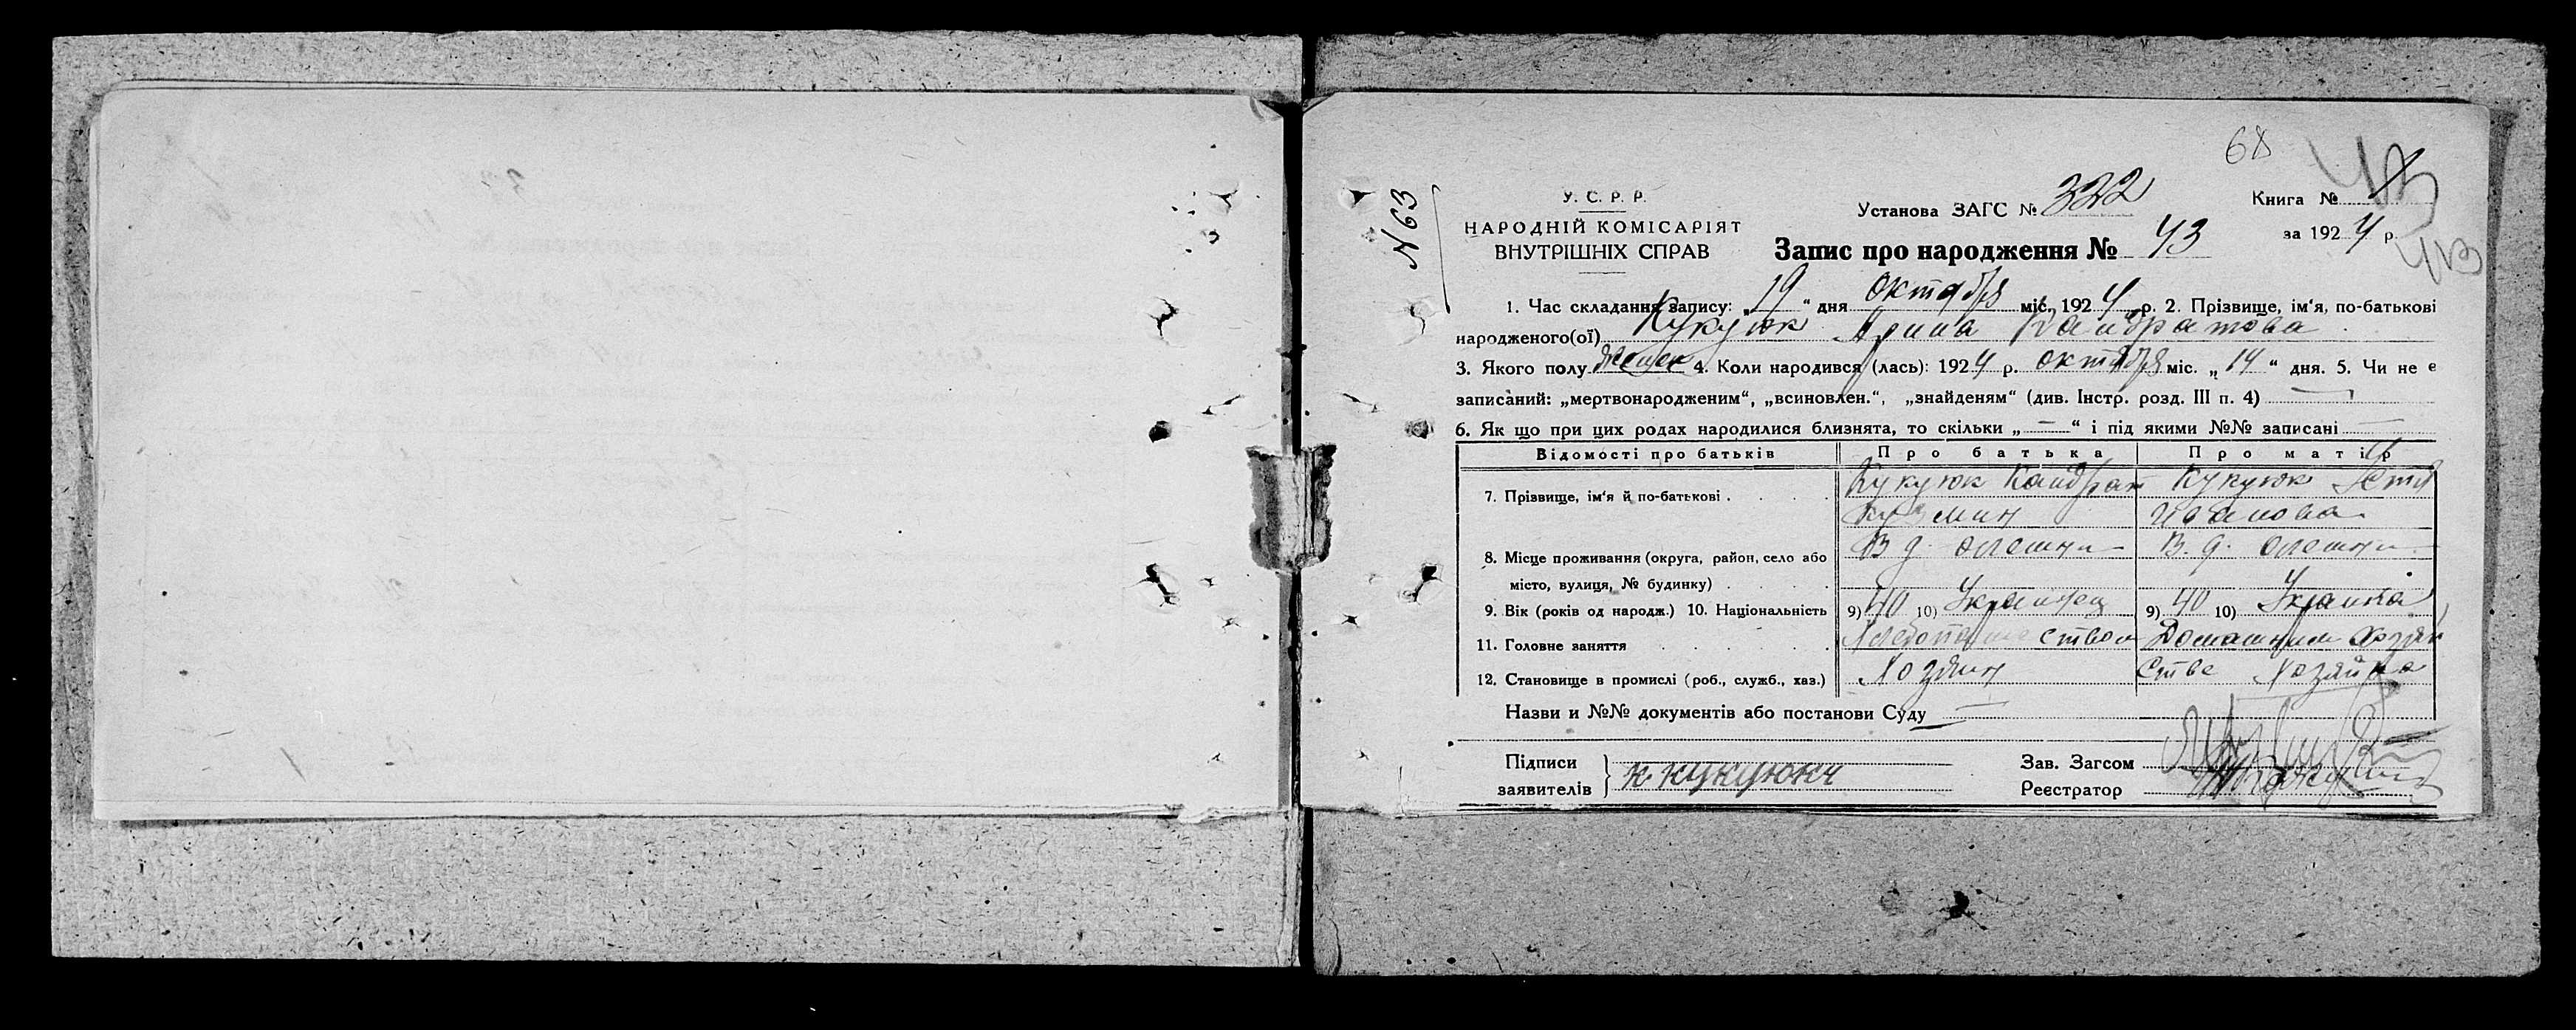 68
43
N 63
У. С. Р. Р.
Установа ЗАГС № 322
Книга № 1
НАРОДНІЙ КОМІСАРІЯТ
ВНУТРІШНІХ СПРАВ
Запис про народження № 43
за 1924 р.
43
1. Час складання запису: „19“ дня октября міс. 1924 р. 2. Прізвище, ім'я, по-батькові
народженого(ої) Кукуюк Арина Кандратова
3. Якого полу женск 4. Коли народився (лась): 1924 р. октября міс. „14“ дня. 5. Чи не е
записаний: „мертвонародженим“, „всиновлен.“, „знайденям“ (див. Інстр. розд. III п. 4) —
6. Як що при цих родах народилися близнята, то скільки „—“ і під якими №№ записані —
Відомості про батьків Про батька Про матір
7. Прізвище, ім'я й по-батькові . . . . Кукуюк Кандрат Кукуюк Устя
Кузмин Иванова
8. Місце проживання (округа, район, село або В д. Олешни В. д. Олешни
місто, вулиця, № будинку) . . . . .
9. Вік (років од народж.) 10. Національність 9) 40 10) Украинец 9) 40 10) Украинка
11. Головне заняття . . . . . . Хлебопашеством Домашним хозяй
12. Становище в промислі (роб., служб., хаз.) Хозяин стве Хозяйка
Назви и №№ документів або постанови Суду —
Підписи
заявителів } К Кукуюкч
Зав. Загсом
Реєстратор